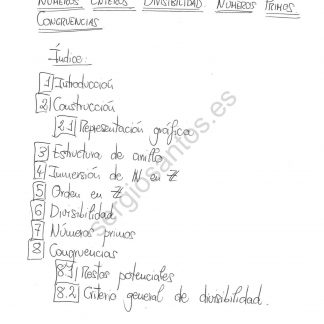 NÚMEROS ENTEROS. DIVISIBILIDAD. NÚMEROS PRIMOS.
CONGRUENCIAS
Índice:
1 Introducción
2 Construcción
2.1 Representación gráfica
3 Estructura de anillo
4 Inmersión de ℕ en ℤ
5 Orden en ℤ
6 Divisibilidad
7 Números primos
8 Congruencias
8.1 Restos potenciales
8.2 Criterio general de divisibilidad.
sergiosantos.es